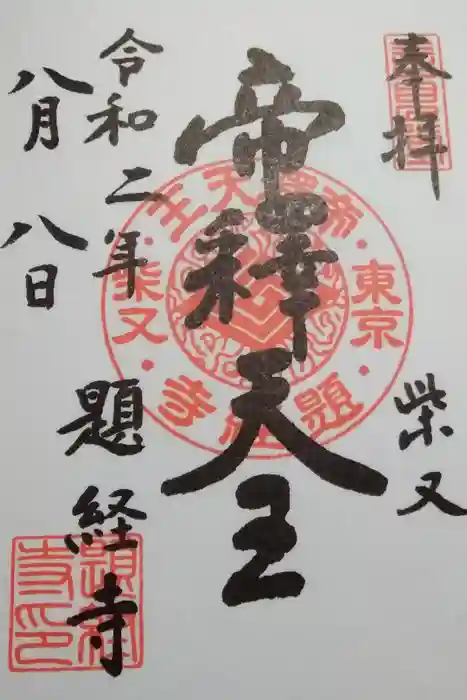 奉拝
柴又
帝釈天王
令和二年
八月八日
題経寺
帝釋天王
東京
柴又
題経寺
題経寺印